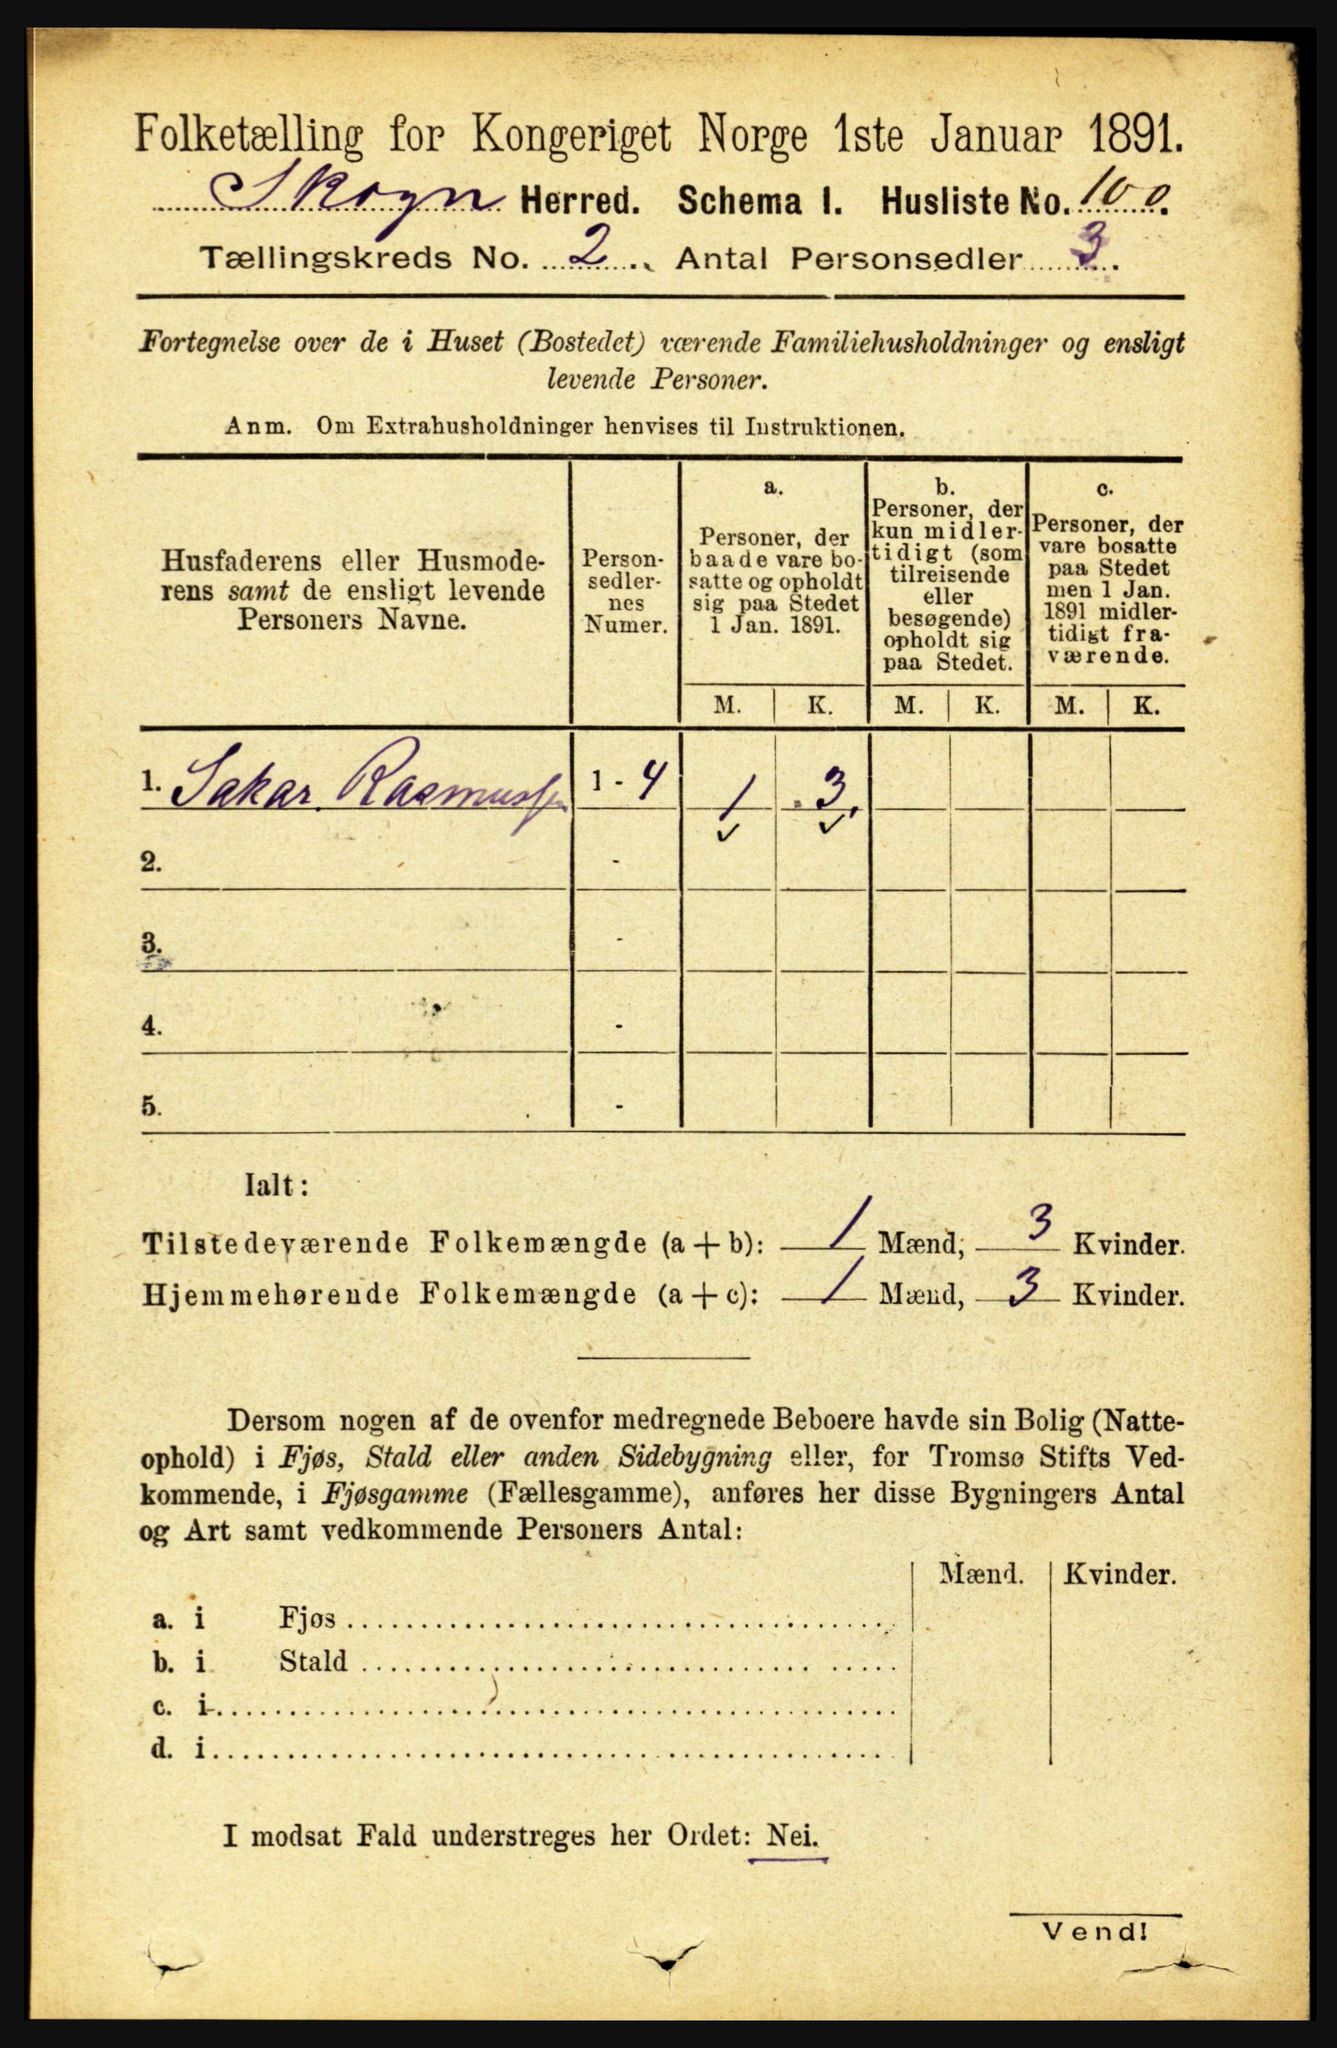 Folketælling for Kongeriget Norge 1ste Januar 1891.
Skogn Herred. Schema I. Husliste No. 100.
Tællingskreds No. 2. Antal Personsedler 3.
Fortegnelse over de i Huset (Bostedet) værende Familiehusholdninger og ensligt
levende Personer.
Anm. Om Extrahusholdninger henvises til Instruktionen.
Husfaderens eller Husmode-
rens samt de ensligt levende
Personers Navne.
Person-
sedler-
nes
Numer.
a.
Personer, der
baade vare bo-
satte og opholdt
sig paa Stedet
1 Jan. 1891.
b.
Personer, der
kun midler-
tidigt (som
tilreisende
eller
besøgende)
opholdt sig
paa Stedet.
c.
Personer, der
vare bosatte
paa Stedet
men 1 Jan.
1891 midler-
tidigt fra-
værende.
M. K. M. K. M. K.
1. Sakar Rasmussen 1 - 4 1 3
2. -
3. -
4. -
5. -
Ialt:
Tilstedeværende Folkemængde (a + b): 1 Mænd, 3 Kvinder.
Hjemmehørende Folkemængde (a + c): 1 Mænd, 3 Kvinder.
Dersom nogen af de ovenfor medregnede Beboere havde sin Bolig (Natte-
ophold) i Fjøs, Stald eller anden Sidebygning eller, for Tromsø Stifts Ved-
kommende, i Fjøsgamme (Fællesgamme), anføres her disse Bygningers Antal
og Art samt vedkommende Personers Antal:
Mænd. Kvinder.
a. i Fjøs
b. i Stald
c. i
d. i
I modsat Fald understreges her Ordet: Nei.
Vend!